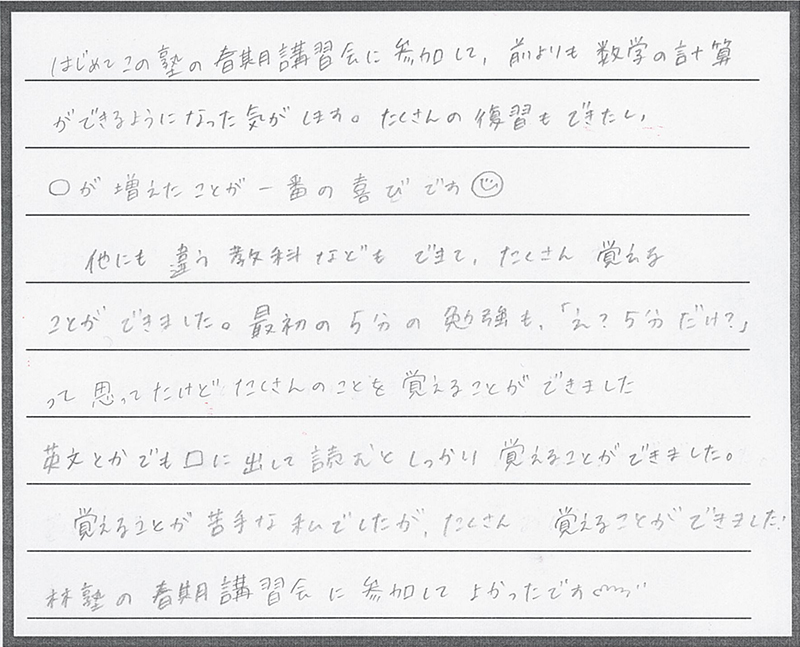 はじめてこの塾の春期講習会に参加して、前よりも数学の計算
ができるようになった気がします。たくさんの復習もできたし
○が増えたことが一番の喜びです☺
他にも違う教科などもできて、たくさん覚える
ことができました。最初の5分の勉強も、「え?5分だけ?」
って思ってたけどたくさんのことを覚えることができました
英文とかでも口に出して読むとしっかり覚えることができました。
覚えることが苦手な私でしたが、たくさん 覚えることができました!
林塾の春期講習会に参加してよかったです